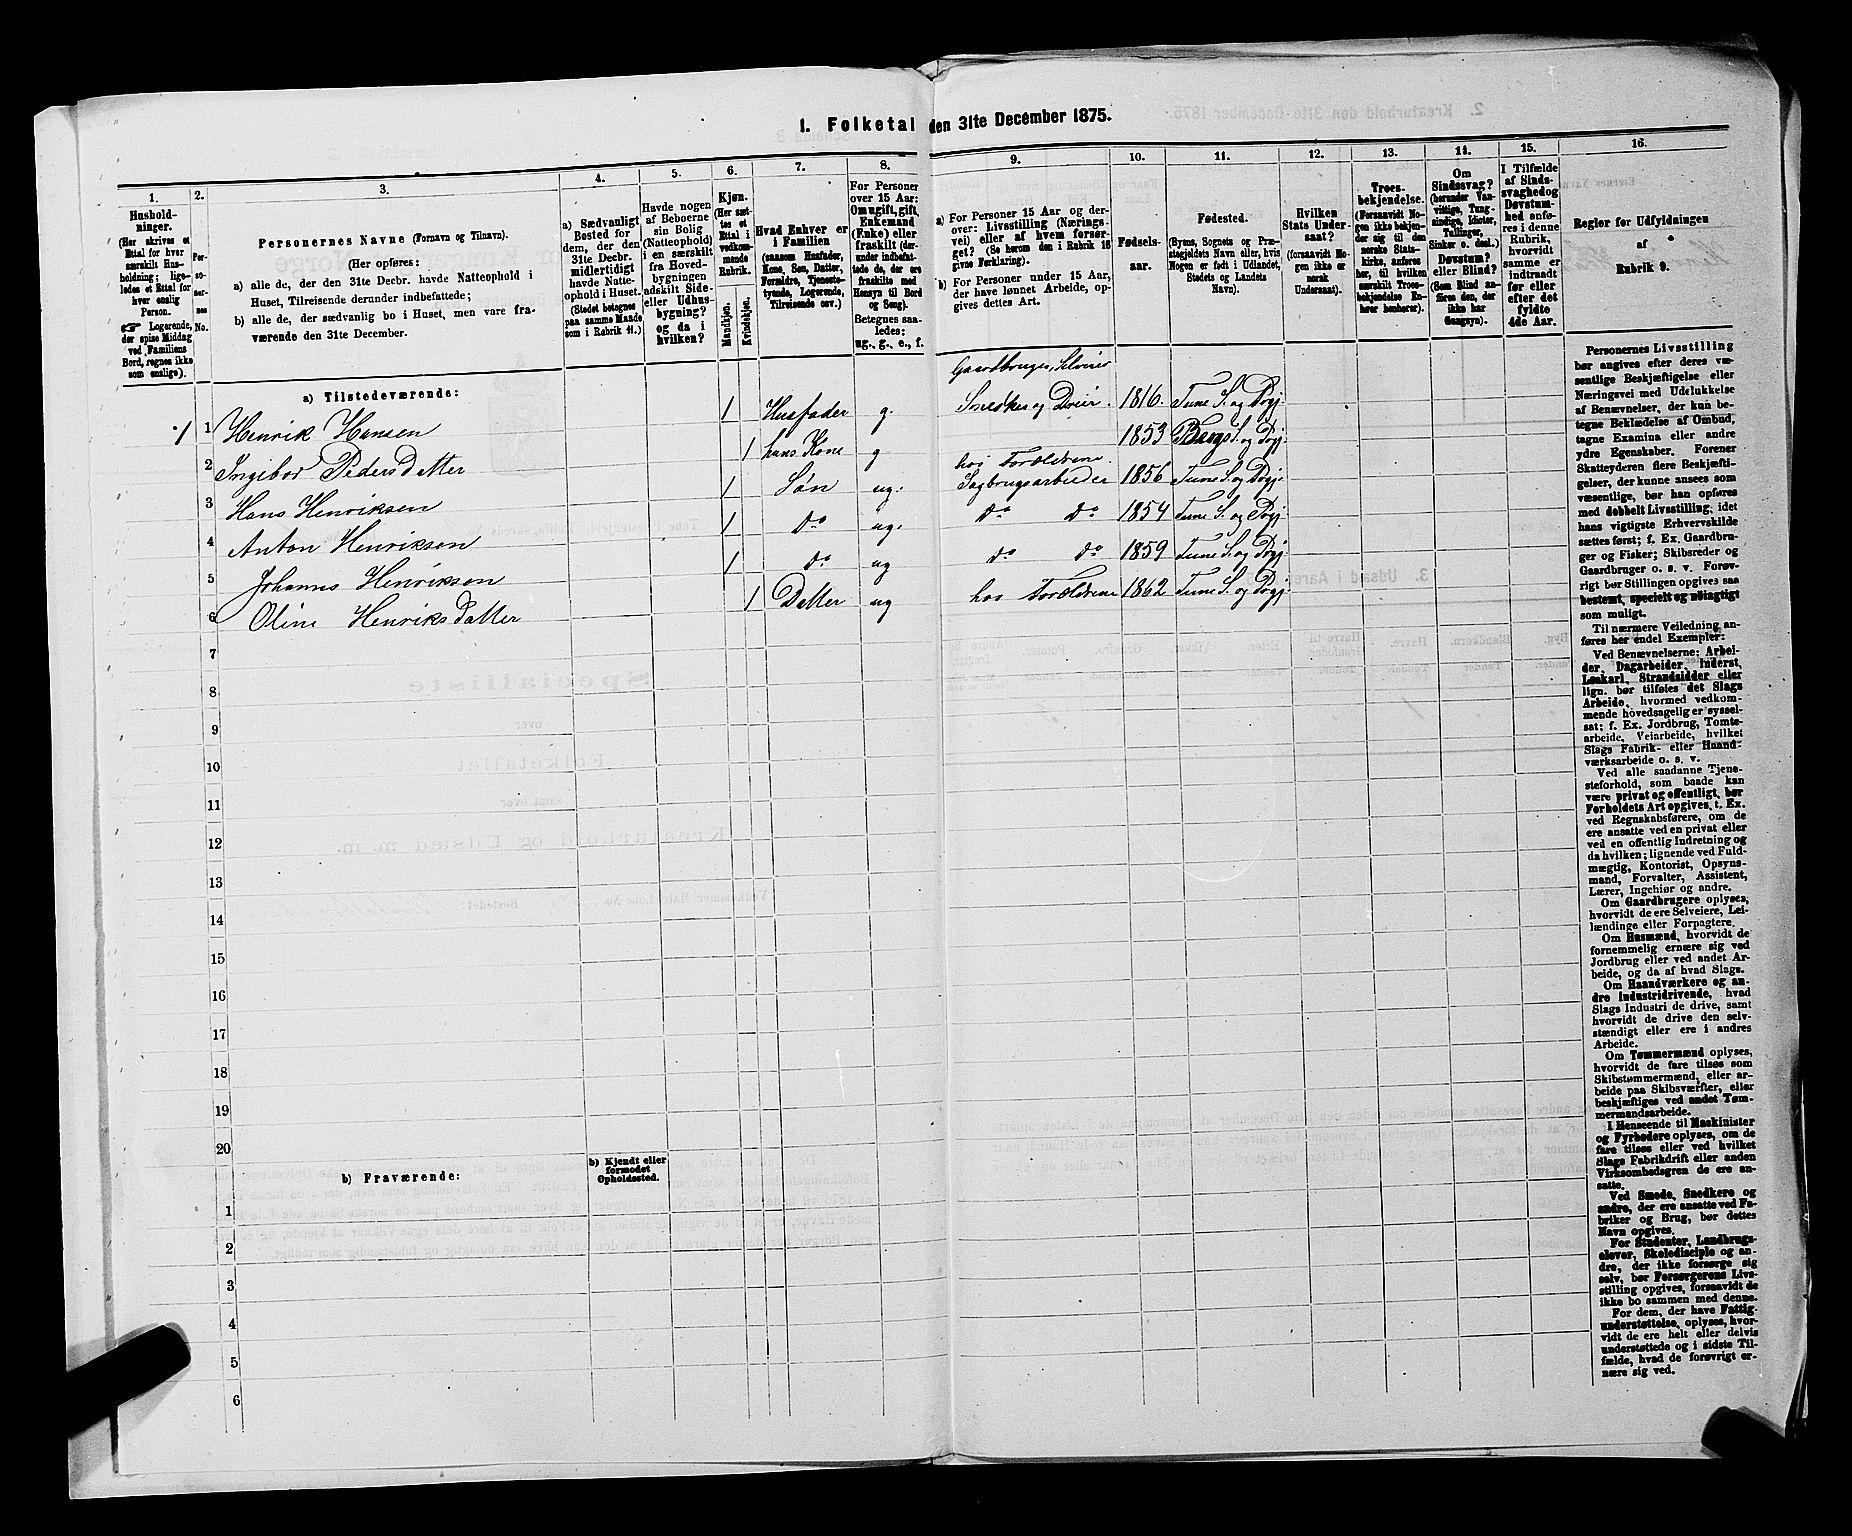 1. Folketal den 31te December 1875.
1. 2. 3. 4. 5. 6. 7. 8. 9. 10. 11. 12. 13. 14. 15. 16.
Hushold-
ninger.
(Her skrives et
Ettal for hver
særskilt Hus-
holdning; lige-
ledes et Ettal for
hver enslig
Person.
☞ Logerende,
der spise Middag
ved Familiens
Bord, regnes ikke
som enslige).
Per-
so-
ner-
nes
No.
Personernes Navne (Fornavn og Tilnavn).
(Her opføres:
a) alle de, der den 31te Decbr. havde Natteophold i
Huset, Tilreisende derunder indbefattede;
b) alle de, der sædvanlig bo i Huset, men vare fra-
værende den 31te December.
a) Sædvanligt
Bosted for
dem, der den
31te Decbr.
midlertidigt
havde Natte-
ophold i Huset.
(Stedet betegnes
paa samme Maade
som i Rubrik 11.)
Havde nogen
af Beboerne
sin Bolig
(Natteophold)
i en særskilt
fra Hoved-
bygningen
adskilt Side-
eller Udhus-
bygning?
og da i
hvilken?
Kjøn.
(Her sæt-
tes et
Ettal i
vedkom-
mende
Rubrik.
Mandkjøn.
Kvindekjøn.
Hvad Enhver er
i Familien
(saasom Husfader,
Kone, Søn, Datter,
Forældre, Tjeneste-
tyende, Logerende,
Tilreisende osv.)
For Personer
over 15 Aar:
Om ugift, gift,
Enkemand
(Enke) eller
fraskilt (der-
under indbefat-
tede de, der ere
fraskilte med
Hensyn til Bord
og Seng).
Betegnes saa-
ledes:
ug., g., e., f.
a) For Personer 15 Aar og der-
over: Livsstilling (Nærings-
vei) eller af hvem forsør-
get? (Se herom den i Rubrik 16
givne Forklaring).
b) For Personer under 15 Aar,
der have lønnet Arbeide, op-
gives dettes Art.
Fødsels-
aar.
Fødested.
(Byens, Sognets og Præ-
stegjeldets Navn eller, hvis
Nogen er født i Udlandet,
Stedets og Landets
Navn).
Hvilken
Stats Under-
saat?
(forsaavidt No-
gen ikke er
norsk
Undersaat).
Troes-
bekjendelse.
(Forsaavidt No-
gen ikke bekjen-
der sig til den
norske Stats-
kirke, anføres
her, til hvilken
særskilt Troes-
bekjendelse En-
hver henhører).
Om
Sindssvag?
(herunder Van-
vittige, Tung-
sindige, Idioter,
Tullinger,
Sinker o. desl.)
Døvstum?
eller Blind?
(Som Blind an-
føres den, der
ikke har
Gangsyn).
I Tilfælde
af Sinds-
svaghed og
Døvstum-
hed anfø-
res i denne
Rubrik,
hvorvidt
samme er
indtraadt
før eller
efter det
fyldte
4de Aar.
Regler for Udfyldningen
af
Rubrik 9.
a) Tilstedeværende:
Gaardbruger, Selveier
1 1 Henrik Hansen 1 Husfader g. Snedker og Dreier. 1816. Tune S. og Prgj.
2 Ingibor PedersDatter 1 hans Kone g 1853 Berg S. og Prgj.
hos Foreldrene.
3 Hans Henriksen 1 Søn ug. Sagbrugsarbeider 1856 Tune S. og Prgj.
4 Anton Henriksen 1 do ug. do do 1854 Tune S. og Prgj.
5 Johannes Henriksen 1 do ug do do 1859 Tune S. og Prgj.
6 Oline HenriksDatter 1 Datter ug hos Foreldrene 1862 Tune S. og Prgj.
7
8
9
10
11
12
13
14
15
16
17
18
19
20
b) Fraværende:
b) Kjendt eller
formodet
Opholdssted.
1
2
3
4
5
6
Personernes Livsstilling
bør angives efter deres væ-
sentlige Beskjæftigelse eller
Næringsvei med Udelukkelse
af Benævnelser, der kun be-
tegne Beklædelse af Ombud,
tagne Examina eller andre
ydre Egenskaber. Forener
Skatteyderen flere Beskjæfti-
gelser, der kunne ansees som
væsentlige, bør han opføres
med dobbelt Livsstilling, idet
hans vigtigste Erhvervskilde
sættes først; f. Ex. Gaardbru-
ger og Fisker; Skibsreder og
Gaardbruger o. s. v. Forøv-
rigt bør Stillingen opgives saa
bestemt, specielt og nøiagtigt
som muligt.
Til nærmere Veiledning an-
føres her endel Exempler:
Ved Benævnelserne: Arbei-
der, Dagarbeider, Inderst,
Løskarl, Strandsidder eller
lign. bør tilføies det Slags
Arbeide, hvormed vedkom-
mende hovedsagelig er syssel-
sat; f. Ex. Jordbrug, Tomte-
arbeide, Veiarbeide, hvilket
Slags Fabrik- eller Haand-
værksarbeide o. s. v.
Ved alle saadanne Tjene-
steforhold, som baade kan
være privat og offentligt, bør
Forholdets Art opgives, t. Ex.
ved Regnskabsførere, om de
ere ansatte ved en privat eller
ved en offentlig Indretning og
da hvilken; lignende ved Fuld-
mægtig, Kontorist, Opsyns-
mand, Forvalter, Assistent,
Lærer, Ingeniør og andre.
Om Gaardbrugere oplyses,
hvorvidt de ere Selveiere, Lei-
lændinge eller Forpagtere.
Om Husmænd, hvorvidt de
fornemmelig ernære sig ved
Jordbrug eller ved andet Ar-
beide, og da af hvad Slags.
Om Haandværkere og an-
dre Industridrivende, hvad
Slags Industri de drive, samt
hvorvidt de drive den selv-
stændigt eller ere i andres
Arbeide.
Om Tømmermænd oplyses,
hvorvidt de fare tilsøs som
Skibstømmermænd, eller ar-
beide paa Skibsværfter, eller
beskjæftiges ved andet Tøm-
mermandsarbeide.
I Henseende til Maskinister
og Fyrbødere oplyses, om de
fare tilsøs eller ved hvilket
Slags Fabrikdrift eller anden
Virksomhedsgren de ere an-
satte.
Ved Smede, Snedkere og
andre, der ere ansatte ved Fa-
briker og Brug, bør dettes
Navn opgives.
For Studenter, Landbrugs-
elever, Skoledisciple og an-
dre, der ikke forsørge sig
selv, bør Forsørgerens Livs-
stilling opgives, forsaavidt de
ikke bo sammen med denne.
For dem, der have Fattig-
understøttelse, oplyses, hvor-
vidt de ere helt eller delvis
understøttede og i sidste Til-
fælde, hvad de forøvrigt er-
nære sig ved.